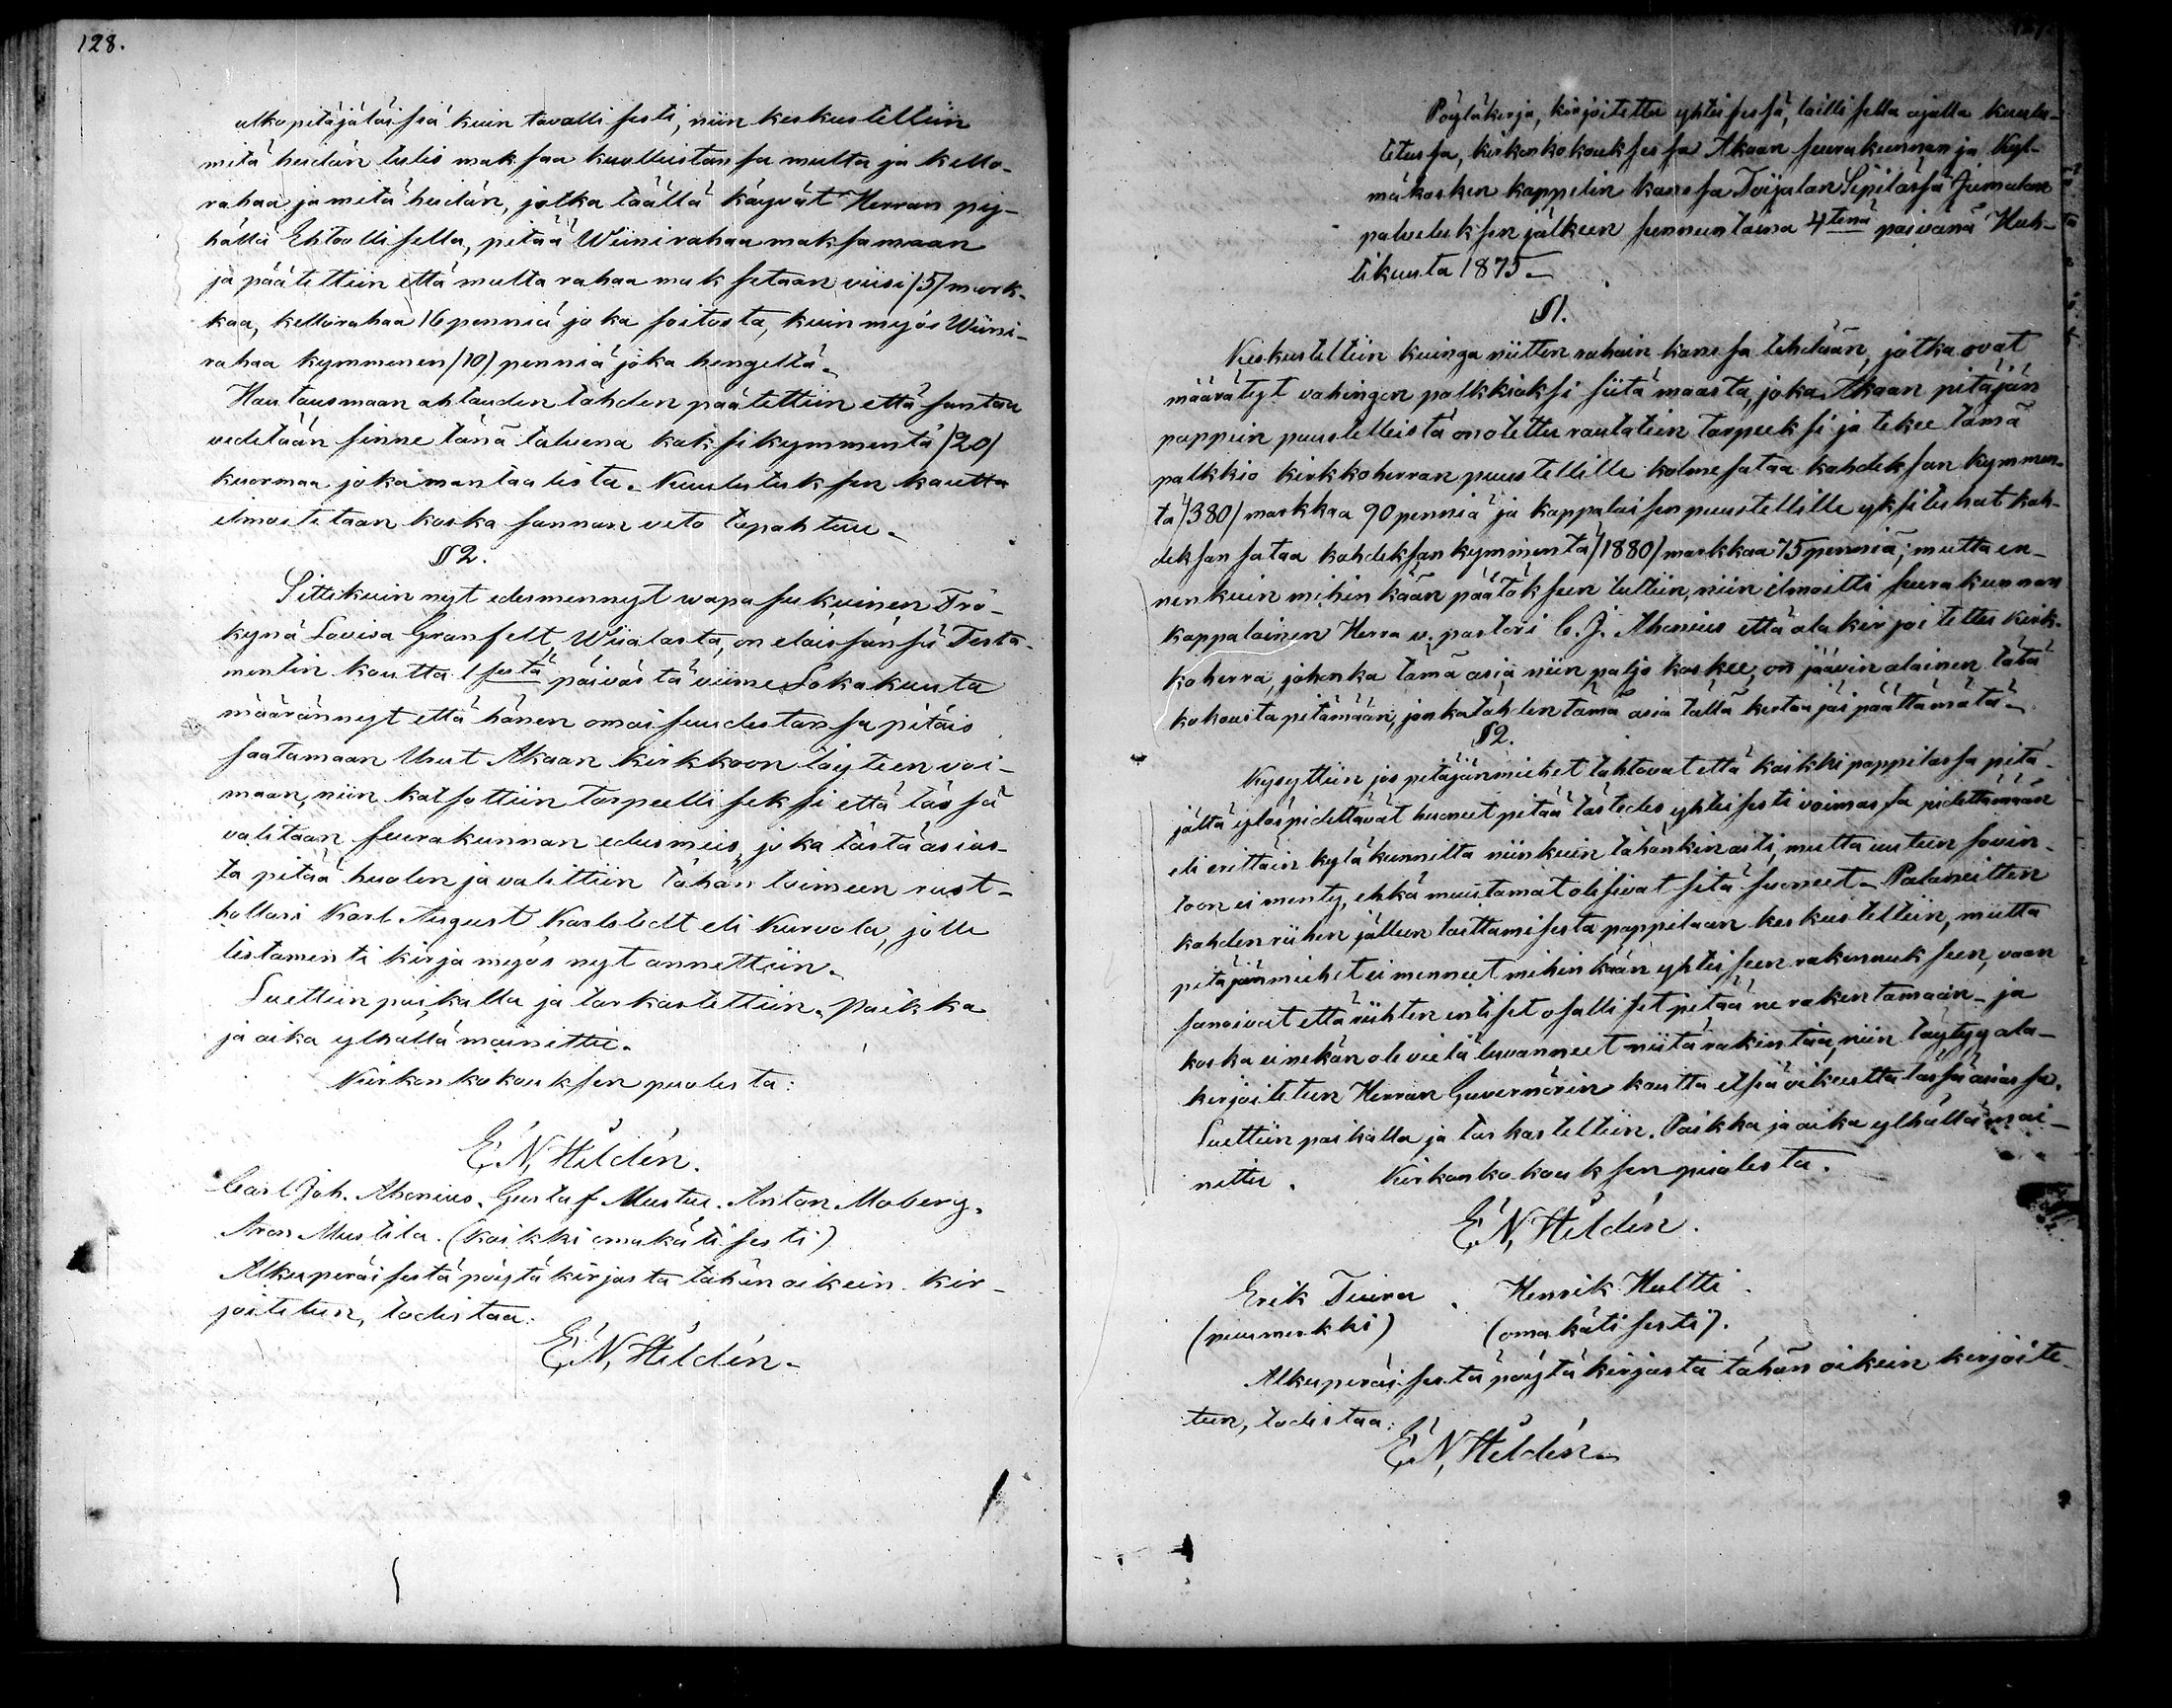 128.
ulkopitäjäläisiä kuin tavallisesti, niin keskusteltiin
mitä heidän tulis maksaa kuolleistansa multa ja kello-
rahaa ja mitä heidän, jotka täällä käyvät Herran py-
hällä Ehtoollisella, pitää Wiinirahaa maksamaan
ja päätettiin että multa rahaa maksetaan viisi /5/ mark-
kaa, kellorahaa 16 penniä joka soitosta, kuin myös Wiini-
rahaa kymmenen /10/ penniä joka hengeltä.
Hautausmaan ahtauden tähden päätettiin että santaa
vedetään sinne tänä talvena kaksikymmentä /20/
kuormaa joka mantaalista. Kuulutuksen kautta
ilmoitetaan koska sannan veto tapahtuu.
§ 2.
Sittekuin nyt edesmennyt wapasukuinen Frö-
kynä Lovisa Granfelt, Wiialasta, on eläissänsä Testa-
mentin kautta 1 sestä päivästä viime Lokakuuta
määrännyt että hänen omaisuudestansa pitäis
saatamaan Urut Akaan kirkkoon täyteen voi-
maan, niin katsottiin tarpeelliseksi että tässä
valitaan seurakunnan edusmies, joka tästä asias-
ta pitää huolen ja valittiin tähän toimeen rust-
hollari Karl August Karlstedt eli Kurvola, jolle
testamenti kirja myös nyt annettiin.
Luettiin paikalla ja tarkastettiin. Paikka
ja aika ylhällä mainittu.
Kirkonkokouksen puolesta:
E. N. Hildén.
Carl Joh. Ahonius. Gustaf Mustue. Anton Moberg.
Aron Mustila. (kaikki omakätisesti)
Alkuperäisestä pöytäkirjasta tähän oikein kir-
joitetun, todistaa:
E. N. Hildén.
Pöytäkirja, kirjoitettu yhteisessä, laillisella ajalla kuulu-
tetussa, kirkonkokouksessa Akaan seurakunnan ja Kyl-
mäkosken kappelin kanssa Toijalan Sipilässä Jumalan
palveluksen jälkeen sunnuntaina 4tenä päivänä Huh-
tikuuta 1875.
§ 1.
Keskusteltiin kuinga niitten rahain kanssa tehdään, jotka ovat
määrätyt vahingon palkkioksi siitä maasta, joka Akaan pitäjän
pappein puustelleista on otettu rautatien tarpeeksi ja tekee tämä
palkkio kirkkoherran puustellille kolmesataa kahdeksan kymmen-
tä /380/ markkaa 90 penniä ja kappalaisen puustellille yksituhat kah-
deksan sataa kahdeksan kymmentä /1880/ markkaa 75 penniä; mutta en-
nenkuin mihinkään päätökseen tultiin, niin ilmoitti seurakunnan
kappalainen Herra v. pastori C. J. Ahonius että ala kirjoitettu kirk-
koherra, johonka tämä asia niin paljo koskee, on jäävin alainen tätä
kokousta pitämään, jonka tähden tämä asia tällä kertaa jäi päättämätä.
§ 2.
Kysyttiin jos pitäjänmiehet tahtovat että kaikki pappilassa pitä-
jältä ylöspidettävät huoneet pitää tästedes yhteisesti voimassa pidettämään
eli erittäin kyläkunnilta niinkuin tähänkin asti, mutta uuteen sovin-
toon ei menty, ehkä muutamat olisivat sitä suoneet. Palaneitten
kahden riihen jälleen laittamisesta pappilaan keskusteltiin, mutta
pitäjänmiehet ei menneet mihinkään yhteiseen rakennukseen, vaan
sanoivat että riihten entiset osalliset pitää ne rakentamaan ja
koska ei nekän ole vielä luvanneet niitä rakentaa, niin täytyy ala-
kirjoitetun Herran Guvernörin kautta etsiä oikeutta tässä asiassa.
Luettiin paikalla ja tarkasteltiin. Paikka ja aika ylhällä mai-
nittu. Kirkonkokouksen puolesta.
E. N. Hildén.
Erik Tuira. Henrik Hultti.
(puumerkki) (omakätisesti).
Alkuperäisestä pöytäkirjasta tähän oikein kirjoite-
tun, todistaa:
E. N. Hildén.